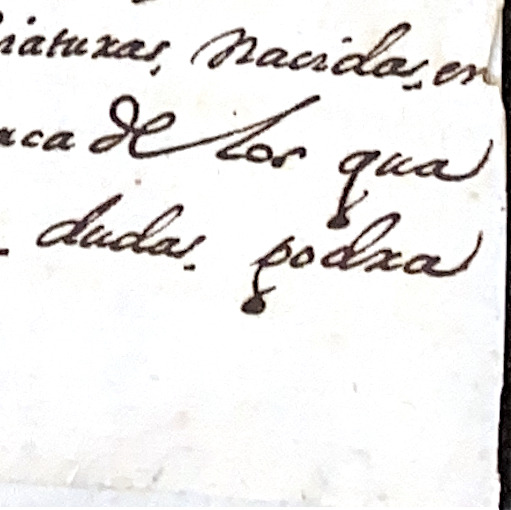 riaturas, Nacidas, en
aca de los qua
dudas. podra